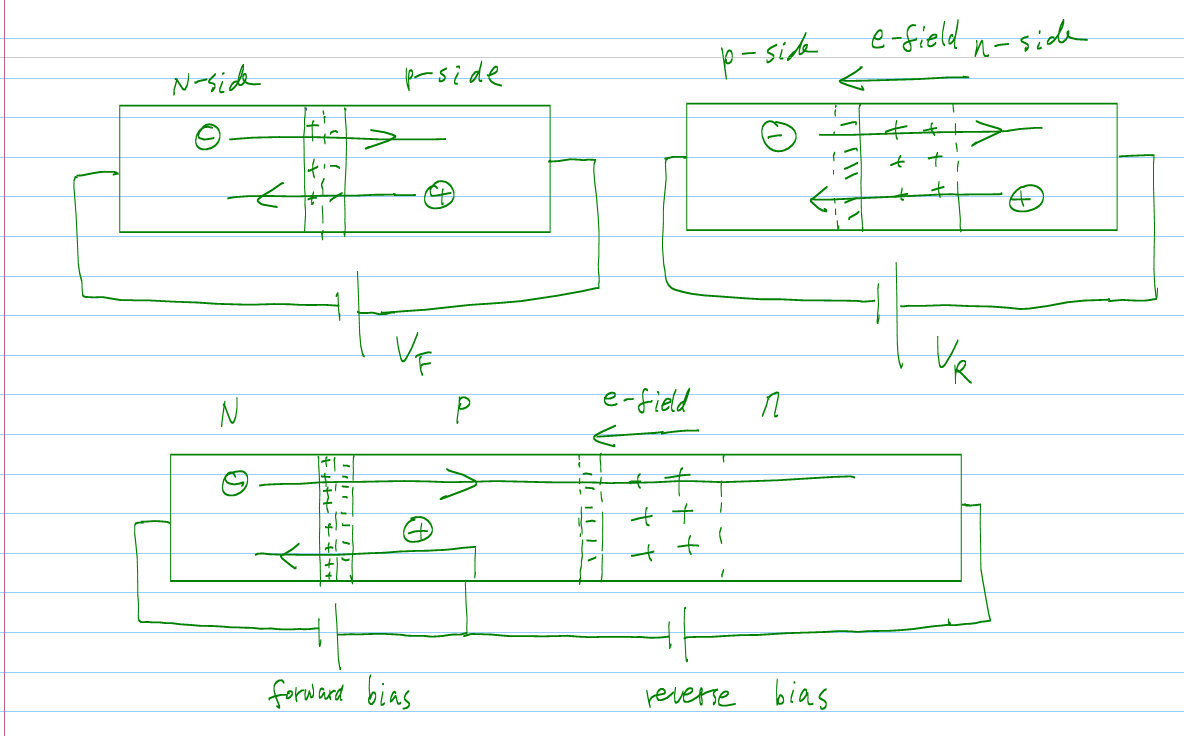 N-side p-side
p-side e-field n-side
V_F
V_R
N P e-field n
forward bias reverse bias